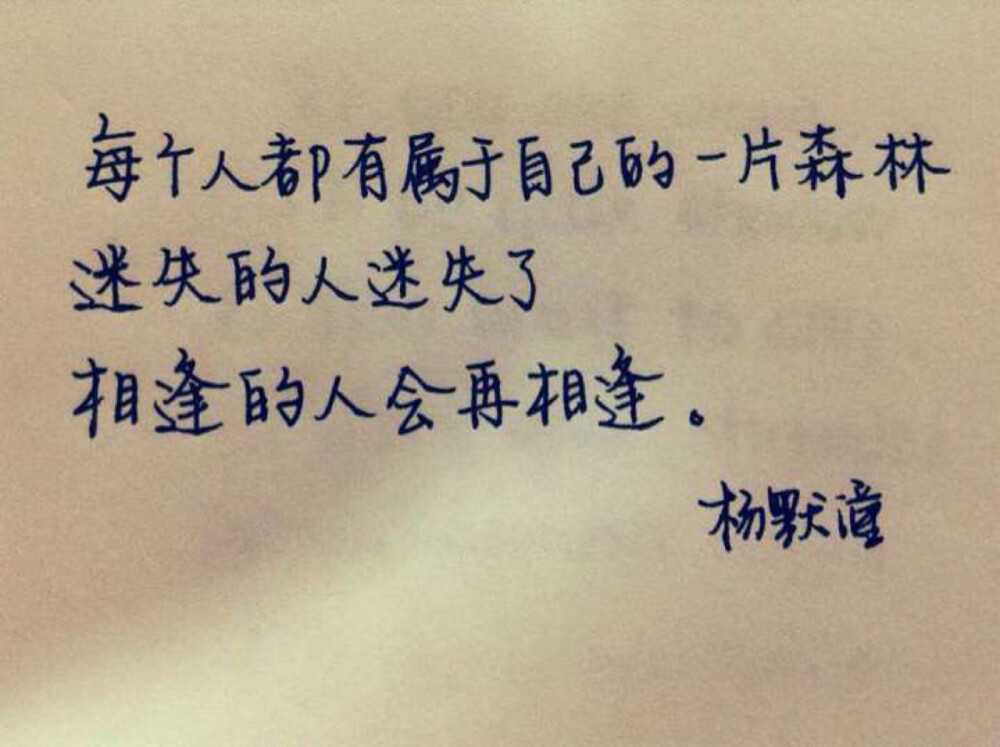 每个人都有属于自己的一片森林
迷失的人迷失了
相逢的人会再相逢。
杨默潼